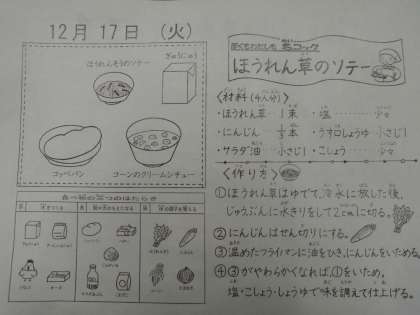 12月17日（火）
ほうれんそうのソテー
ぎゅうにゅう
コッペパン
コーンのクリームシチュー
食べ物の三つのはたらき
ぼくもわたしも 名コック
ほうれん草のソテー
〈材料(4人分)〉
・ほうれん草… 1束 ・塩………少々
・にんじん 1/3本 ・うす口しょうゆ 小さじ1
・サラダ油 小さじ1 ・こしょう…… 少々
〈作り方〉
①ほうれん草はゆでて、冷水に放した後、
じゅうぶんに水きりをして2cmに切る。
②にんじんはせん切りにする。
③温めたフライパンに油をひき、にんじんをいためる。
④③がやわらかくなれば、①をいため、
塩・こしょう・しょうゆで味を調えて仕上げる。